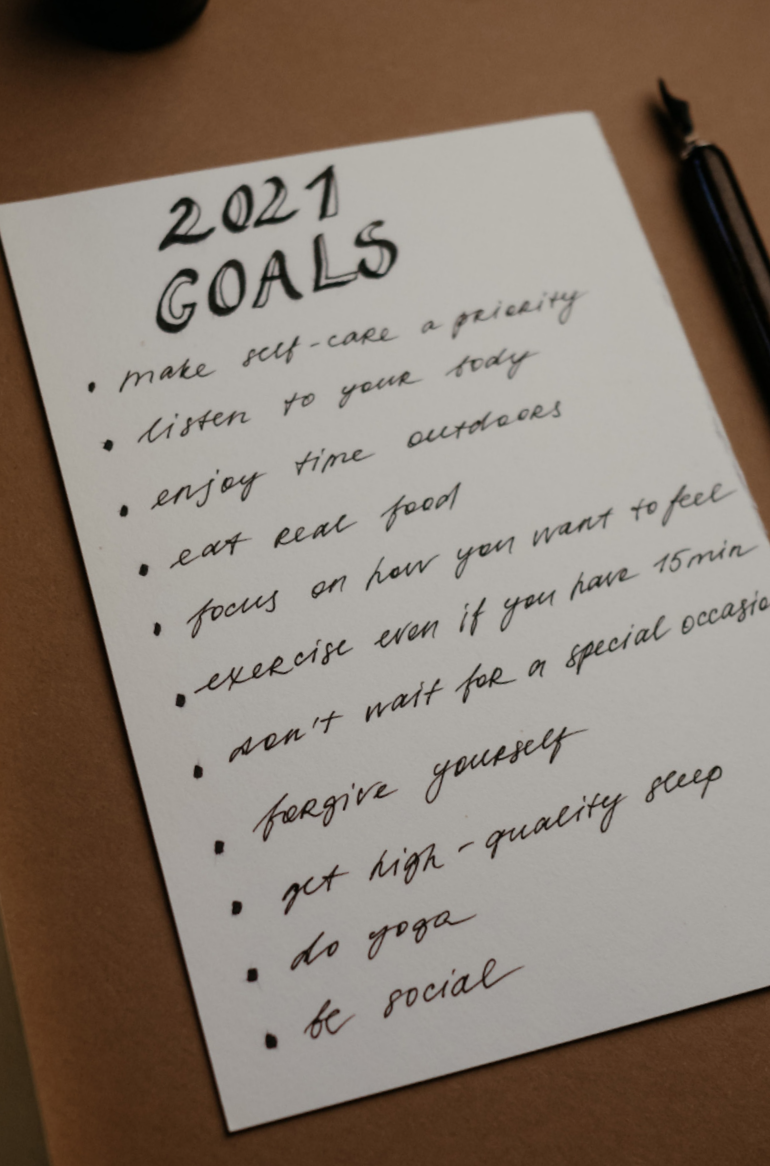 2021
GOALS
• make self-care a priority
• listen to your body
• enjoy time outdoors
• eat real food
• focus on how you want to feel
• exercise even if you have 15min
• don't wait for a special occasio
• forgive yourself
• get high-quality sleep
• do yoga
• be social